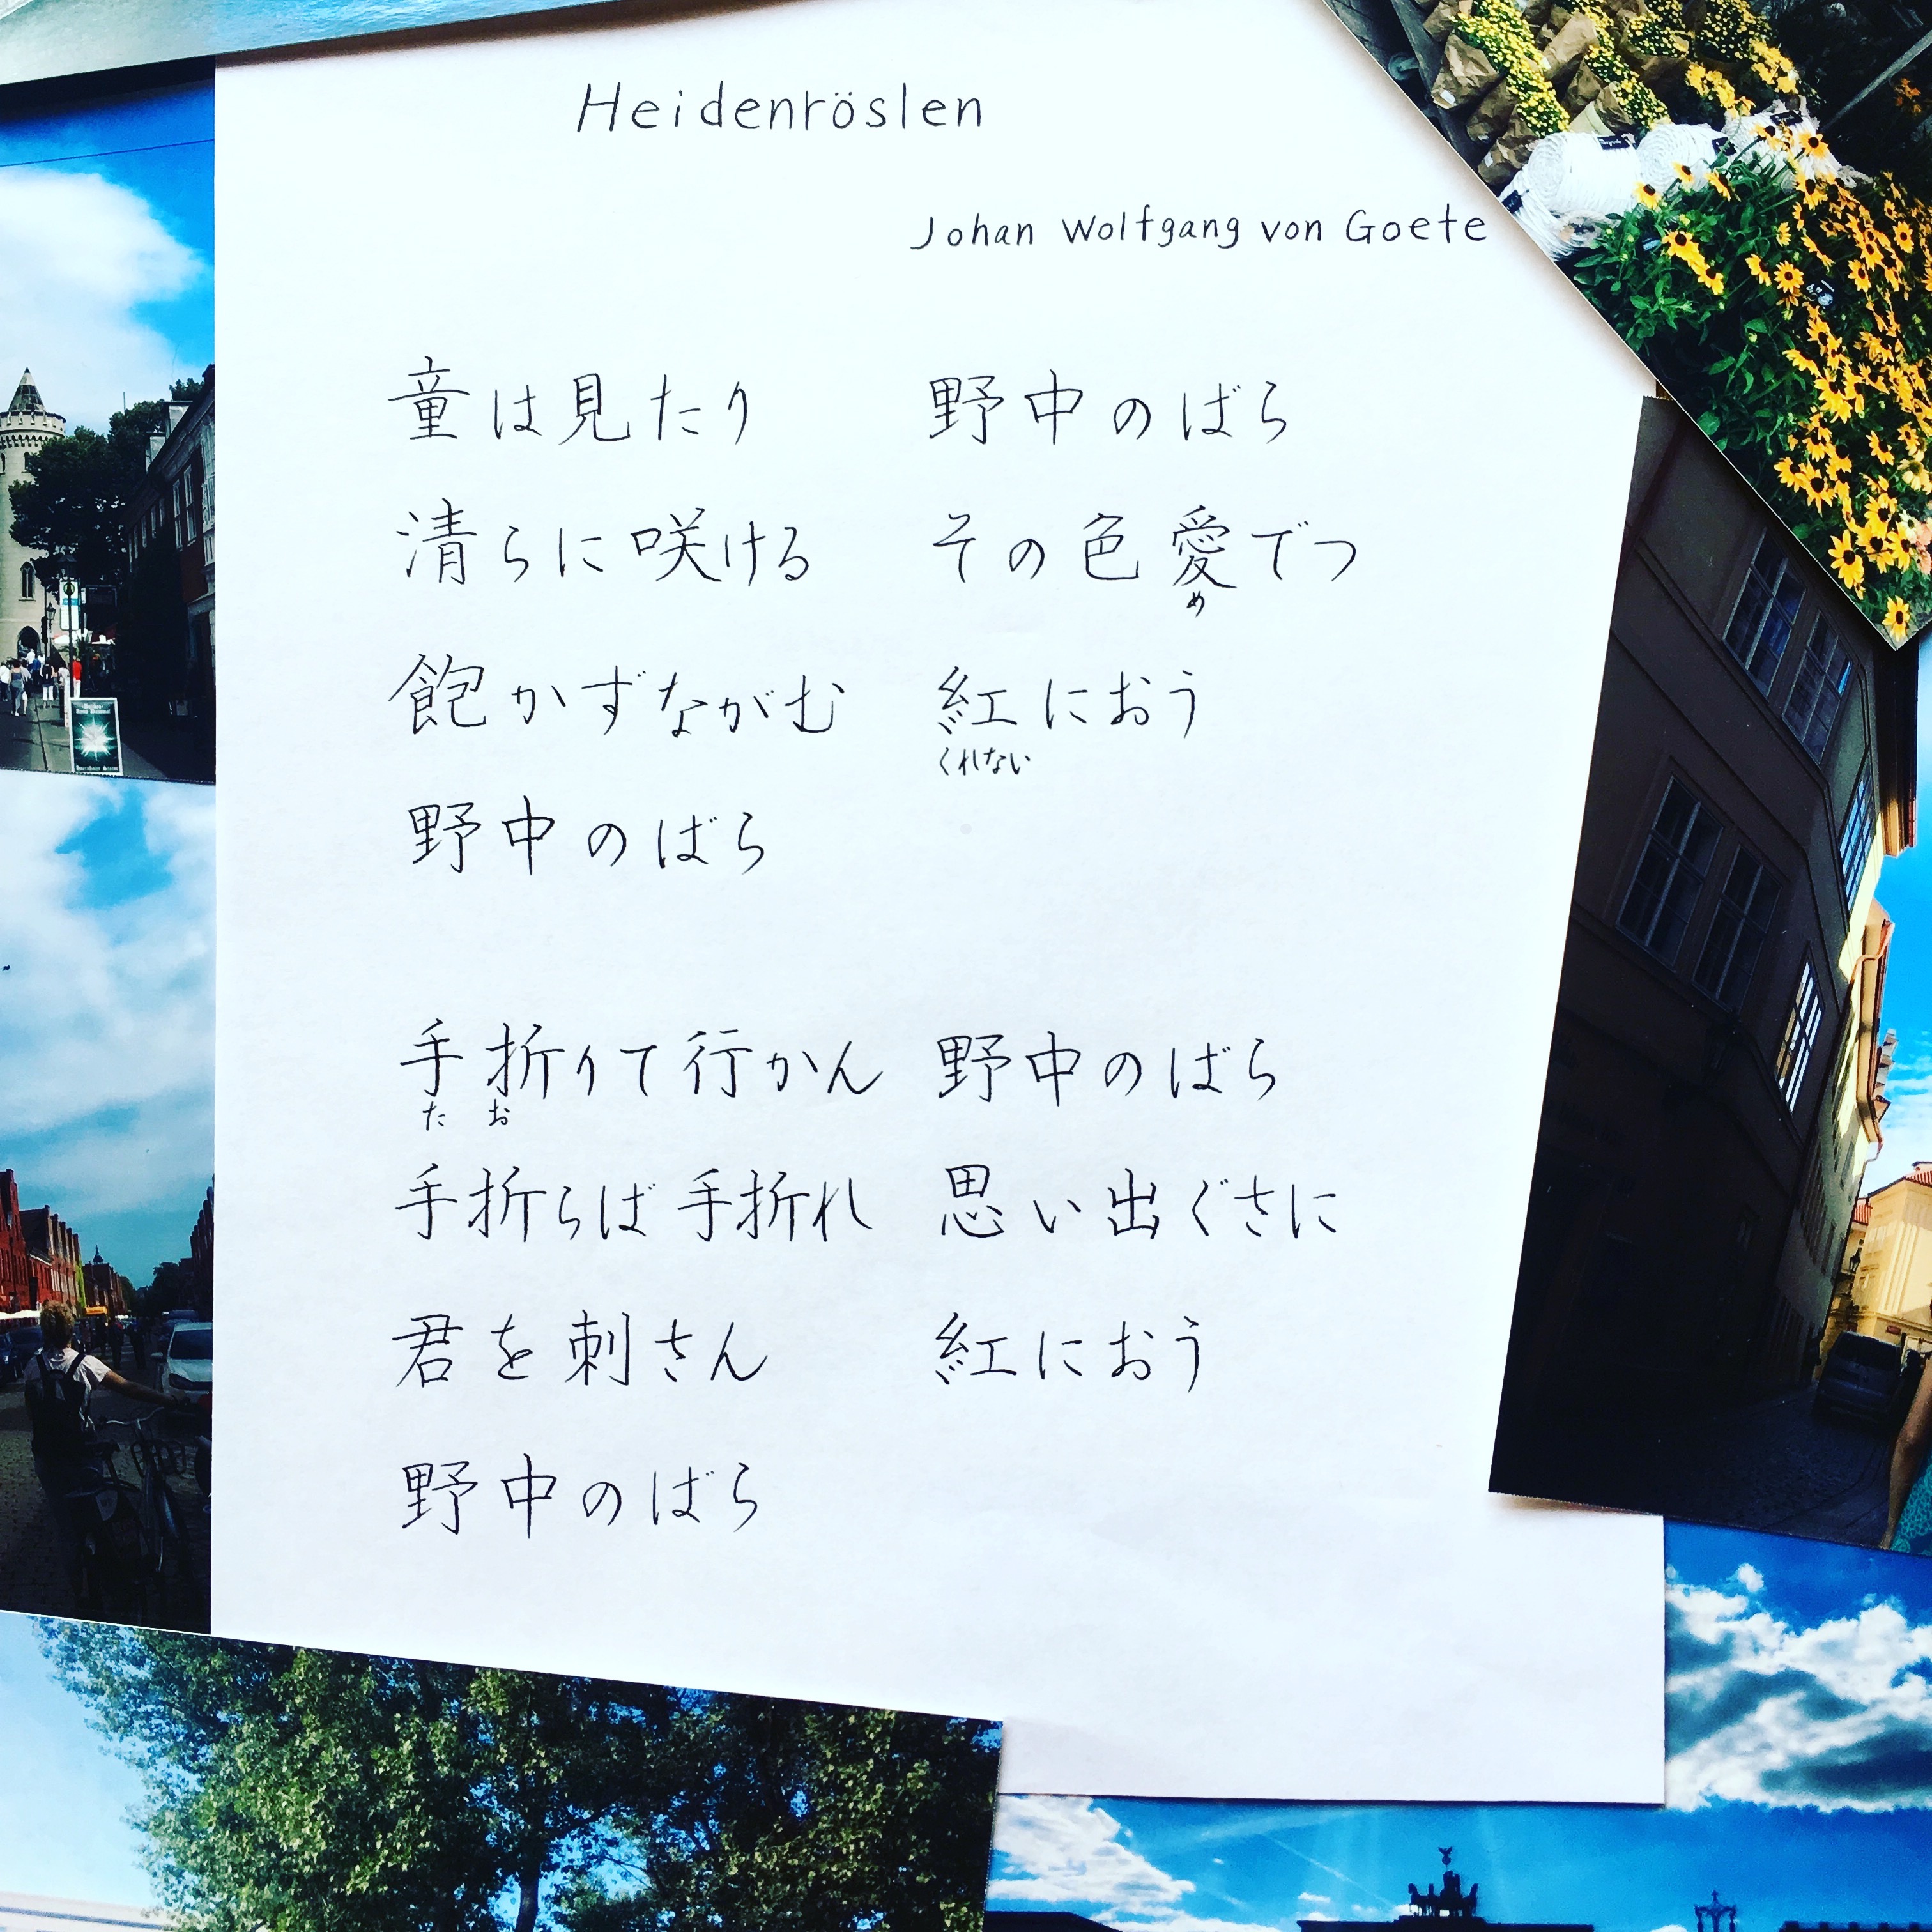 Heidenröslen
Johan Wolfgang von Goete
童は見たり 野中のばら
清らに咲ける その色愛でつ
め
飽かずながむ 紅におう
くれない
野中のばら
手折りて行かん 野中のばら
た お
手折らば手折れ 思い出ぐさに
君を刺さん 紅におう
野中のばら